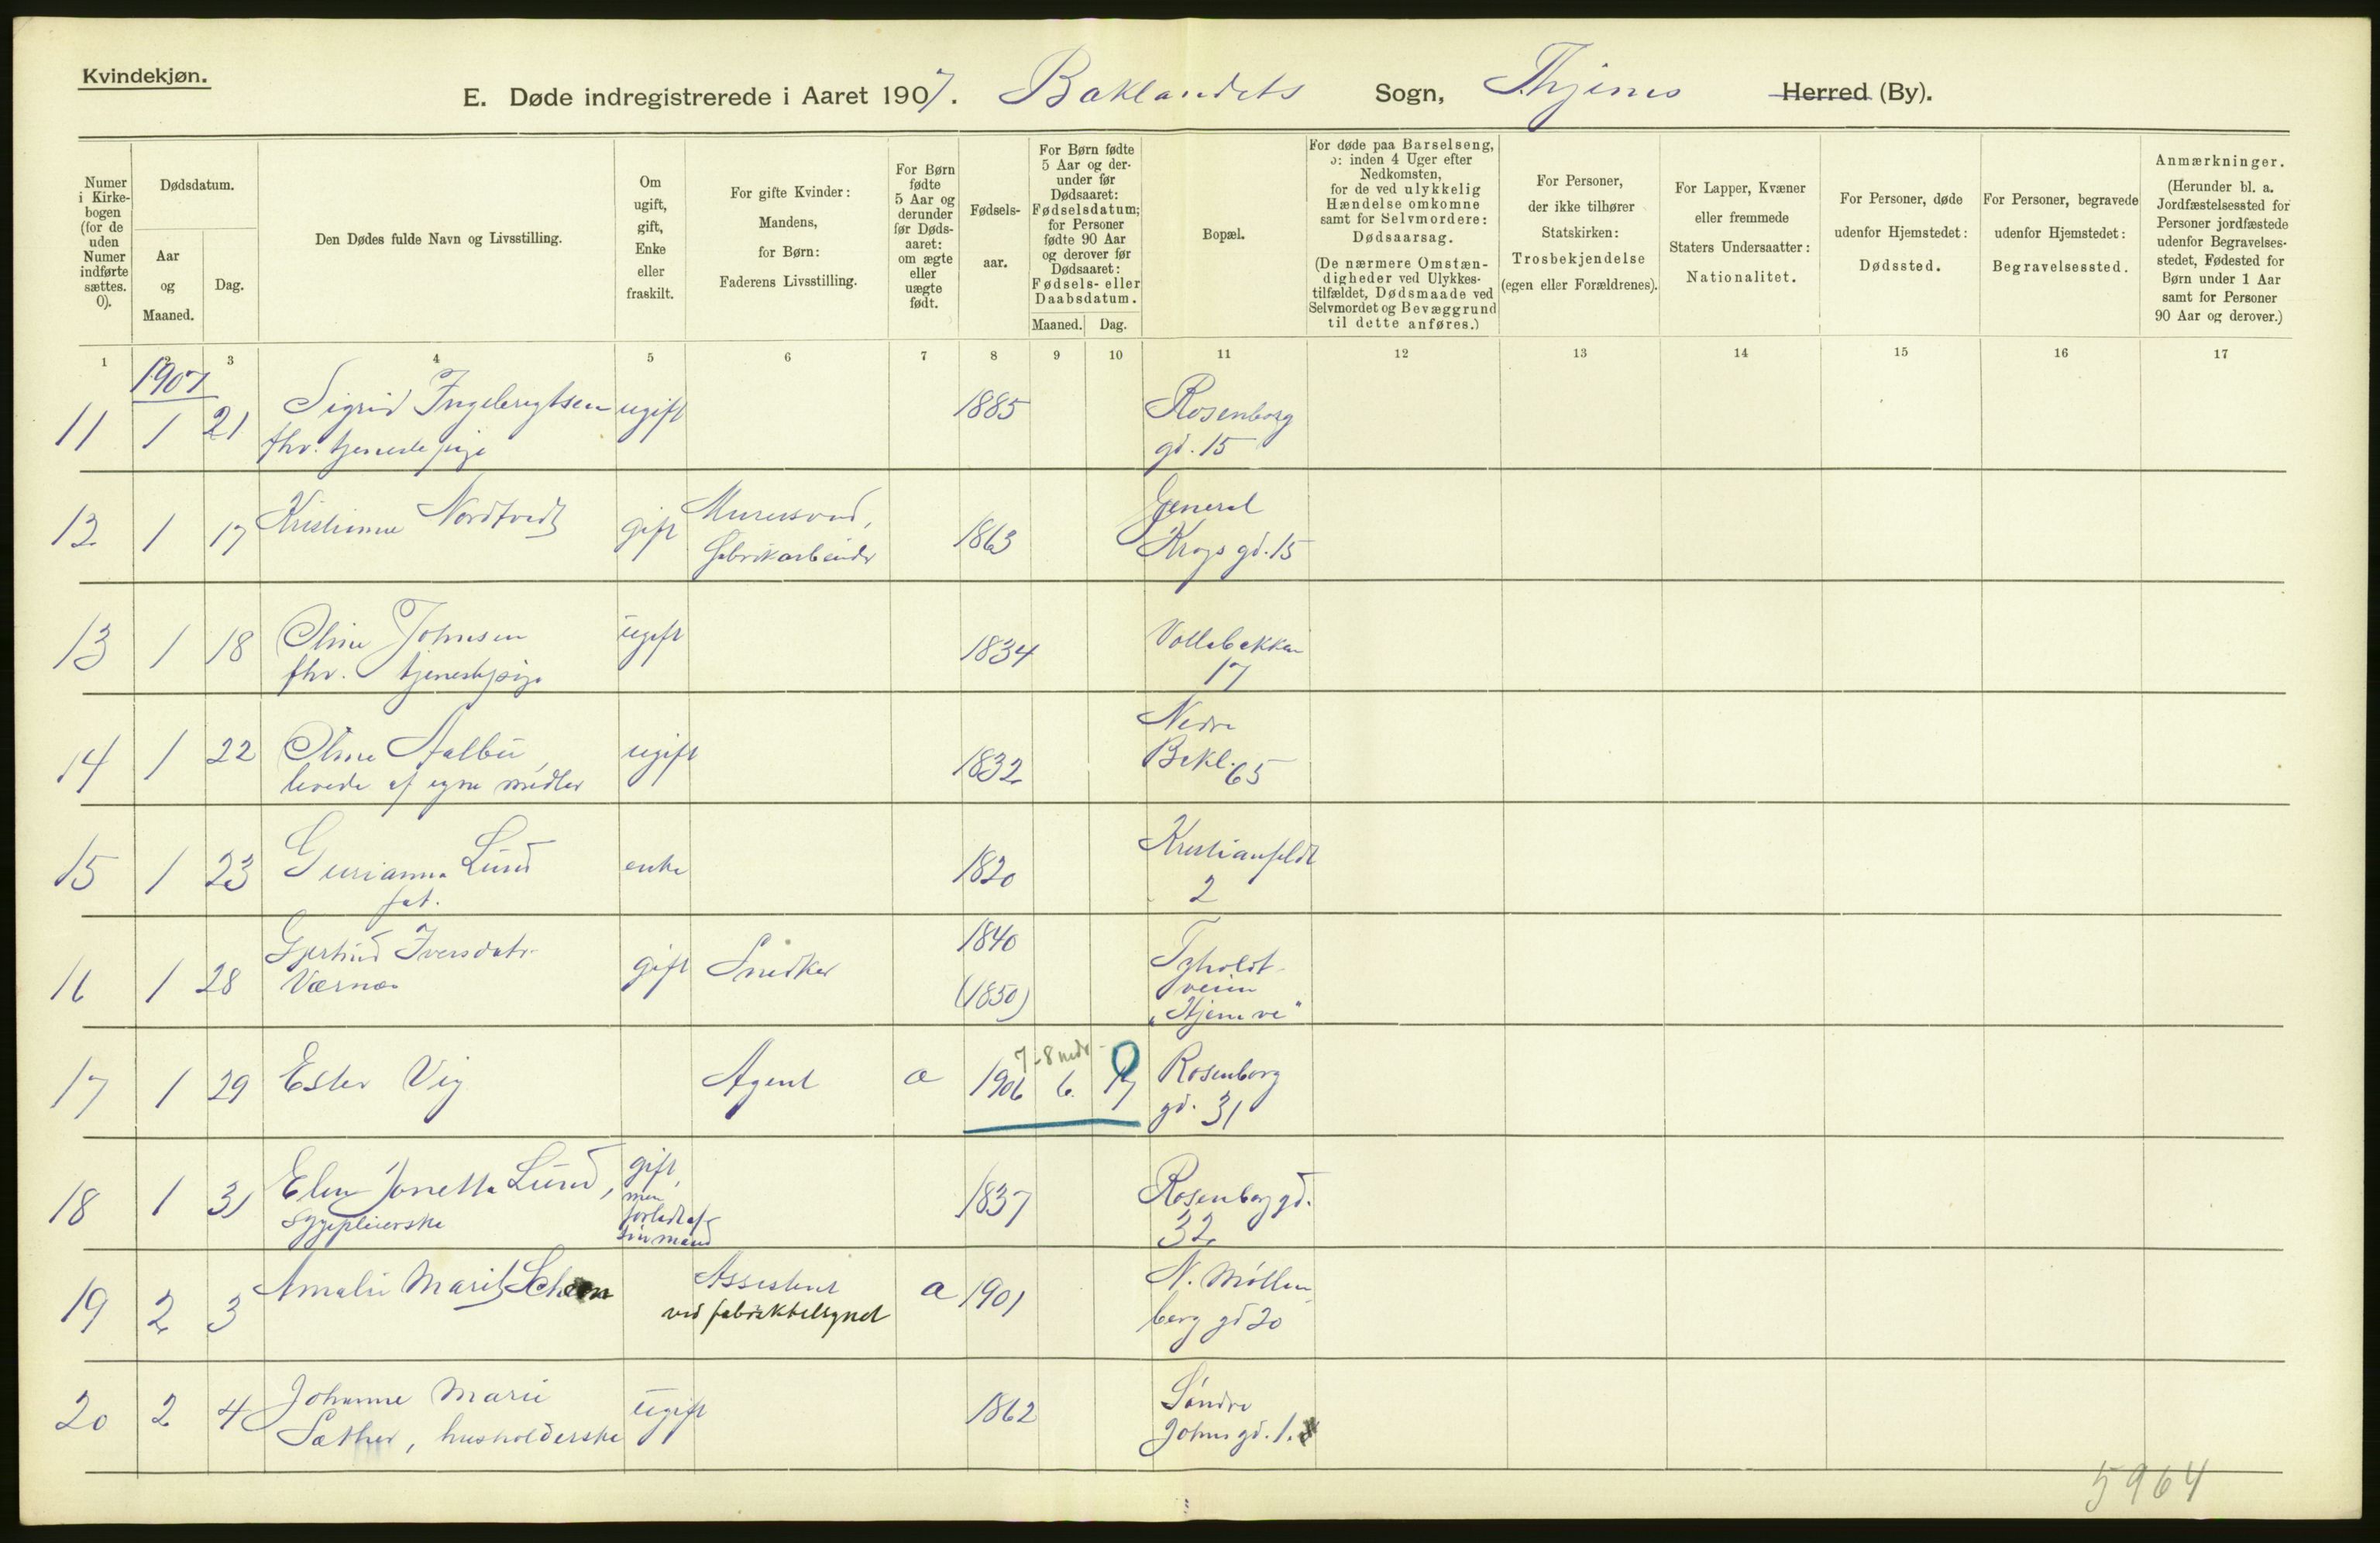 Kvindekjøn.
E. Døde indregistrerede i Aaret 1907. Baklandets Sogn, Thjems Herred (By).
Numer i Kirkebogen (for de uden Numer indførte sættes. 0).
Dødsdatum.
Aar og Maaned.
Dag.
Den Dødes fulde Navn og Livsstilling.
Om ugift, gift, Enke eller fraskilt.
For gifte Kvinder: Mandens, for Børn: Faderens Livsstilling.
For Børn fødte 5 Aar og derunder før Dødsaaret: om ægte eller uægte født.
Fødselsaar.
For Børn fødte 5 Aar og derunder før Dødsaaret: Fødselsdatum; for Personer fødte 90 Aar og derover før Dødsaaret: Fødsels- eller Daabsdatum.
Maaned. Dag.
Bopæl.
For døde paa Barselseng, ɔ: inden 4 Uger efter Nedkomsten, for de ved ulykkelig Hændelse omkomne samt for Selvmordere: Dødsaarsag. (De nærmere Omstændigheder ved Ulykkestilfældet, Dødsmaade ved Selvmordet og Bevæggrund til dette anføres.)
For Personer, der ikke tilhører Statskirken: Trosbekjendelse (egen eller Forældrenes).
For Lapper, Kvæner eller fremmede Staters Undersaatter: Nationalitet.
For Personer, døde udenfor Hjemstedet: Dødssted.
For Personer, begravede udenfor Hjemstedet: Begravelsessted.
Anmærkninger. (Herunder bl. a. Jordfæstelsessted for Personer jordfæstede udenfor Begravelsesstedet, Fødested for Børn under 1 Aar samt for Personer 90 Aar og derover.)
1 2 3 4 5 6 7 8 9 10 11 12 13 14 15 16 17
1907
11 1 21 Sigrid Ingebrigtsen ugift 1885 Rosenborg
fhv. tjenestepige gd. 15
12 1 17 Kristianne Nordtvedt gift Murersvend, 1863 General
fabrikarbeider Krogs gd. 15
13 1 18 Oline Johnsen ugift 1834 Vollabakken
fhv. tjenestepige 17
14 1 22 Oline Aalbu, ugift 1832 Nedre
levede af egne midler Bakl. 65
15 1 23 Gurianna Lund enke 1820 Kristianfeldt
fat. 2
16 1 28 Gjertrud Iversdatr. gift Snedker 1840 Tyholdt-
Værnæs (1850) veien
„Hjemve"
7-8 mdr
17 1 29 Ester Vig Agent a 1906 6. 17 Rosenborg
gd. 31
18 1 31 Elen Jonetta Lund, gift, 1837 Rosenborg gd.
sygepleierske men forladt af sin mand 32
19 2 3 Amalie Marit Schøn Assistent a 1901 N. Møllen-
ved fabriktilsynet berg gd 20
20 2 4 Johanne Marie ugift 1862 Søndre
Sæther, husholderske Johns gd. 1.
5964